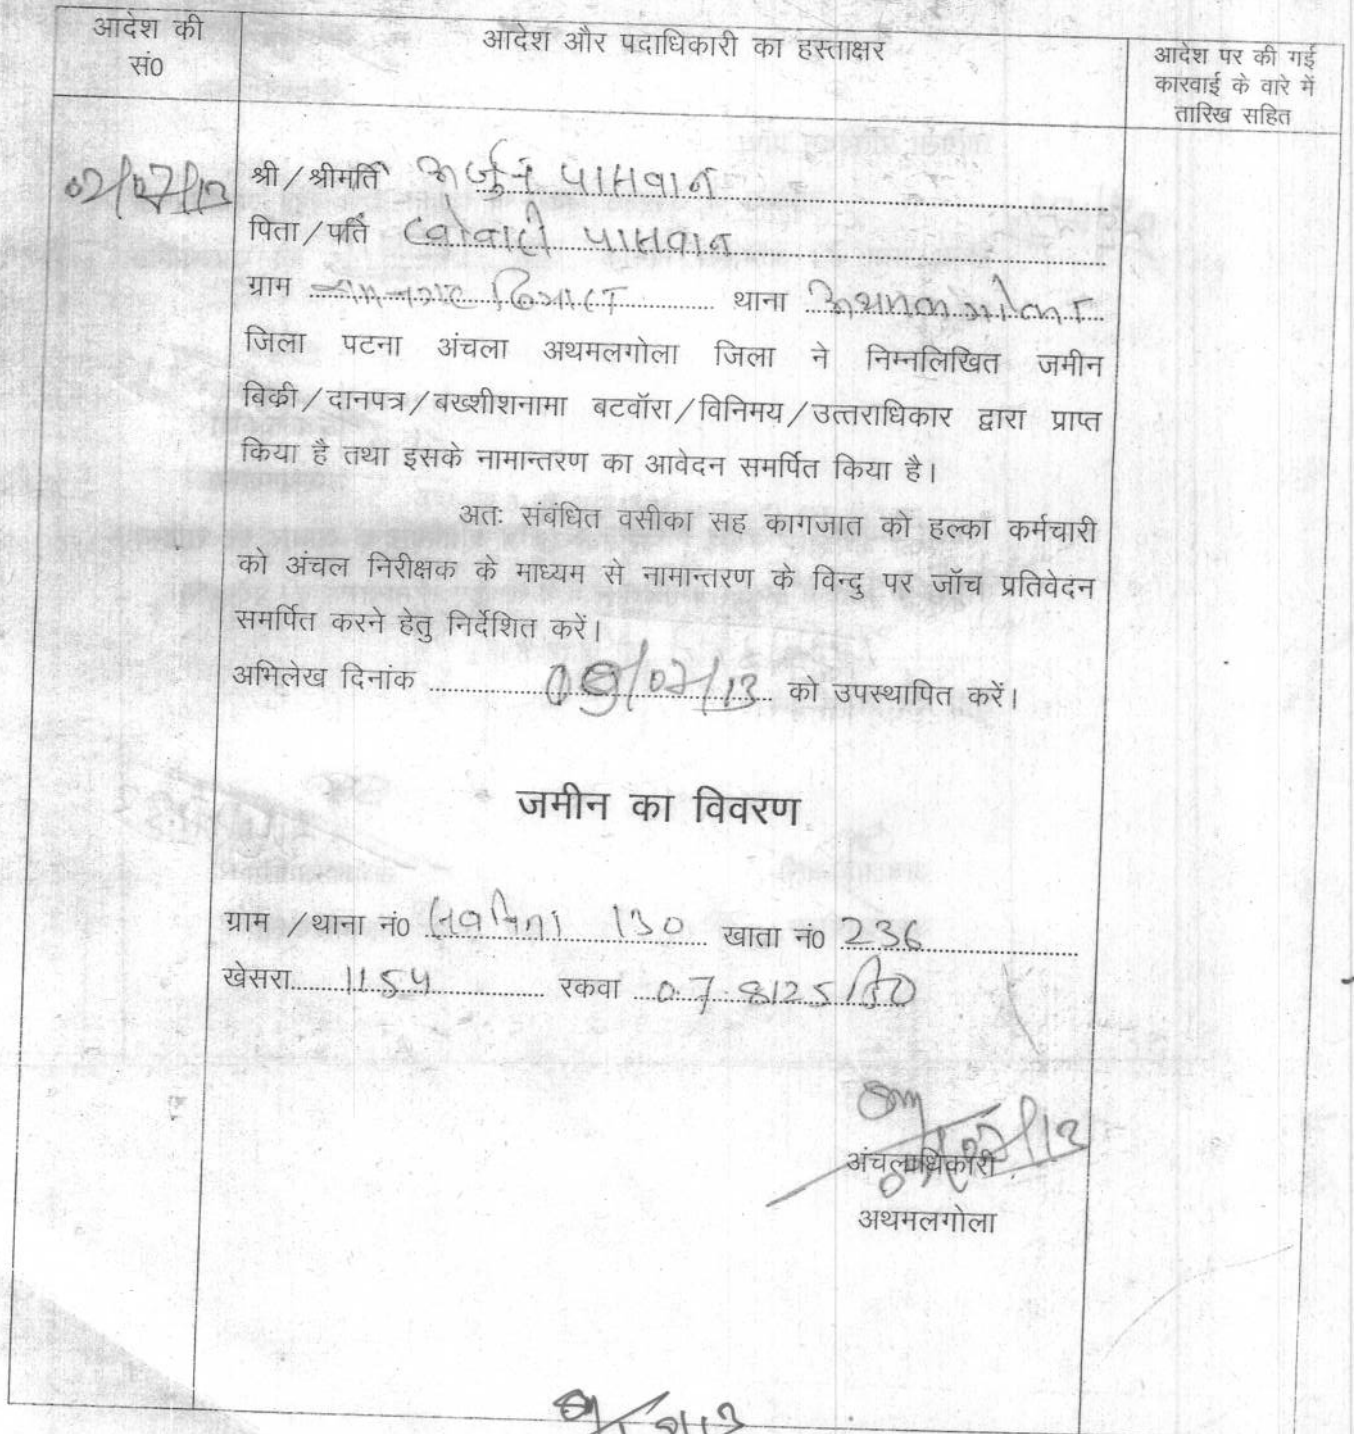 आदेश की
सं0
आदेश और पदाधिकारी का हस्ताक्षर
आदेश पर की गई
कारवाई के वारे में
तारिख सहित
02/07/13
श्री/श्रीमर्ति अर्जुन पासवान
पिता/पर्ति पासवान
ग्राम थाना अथमलगोला
जिला पटना अंचला अथमलगोला जिला ने निम्नलिखित जमीन
बिकी/दानपत्र/बख्शीशनामा बटवॉरा/विनिमय/उत्तराधिकार द्वारा प्राप्त
किया है तथा इसके नामान्तरण का आवेदन समर्पित किया है।
अतः संबंधित वसीका सह कागजात को हल्का कर्मचारी
को अंचल निरीक्षक के माध्यम से नामान्तरण के विन्दु पर जॉच प्रतिवेदन
समर्पित करने हेतु निर्देशित करें।
अभिलेख दिनांक 09/07/13 को उपस्थापित करें।
जमीन का विवरण
ग्राम /थाना नं0 130 खाता नं0 236
खेसरा 1154 रकवा 0.7.8125
अंचलाधिकारी
अथमलगोला